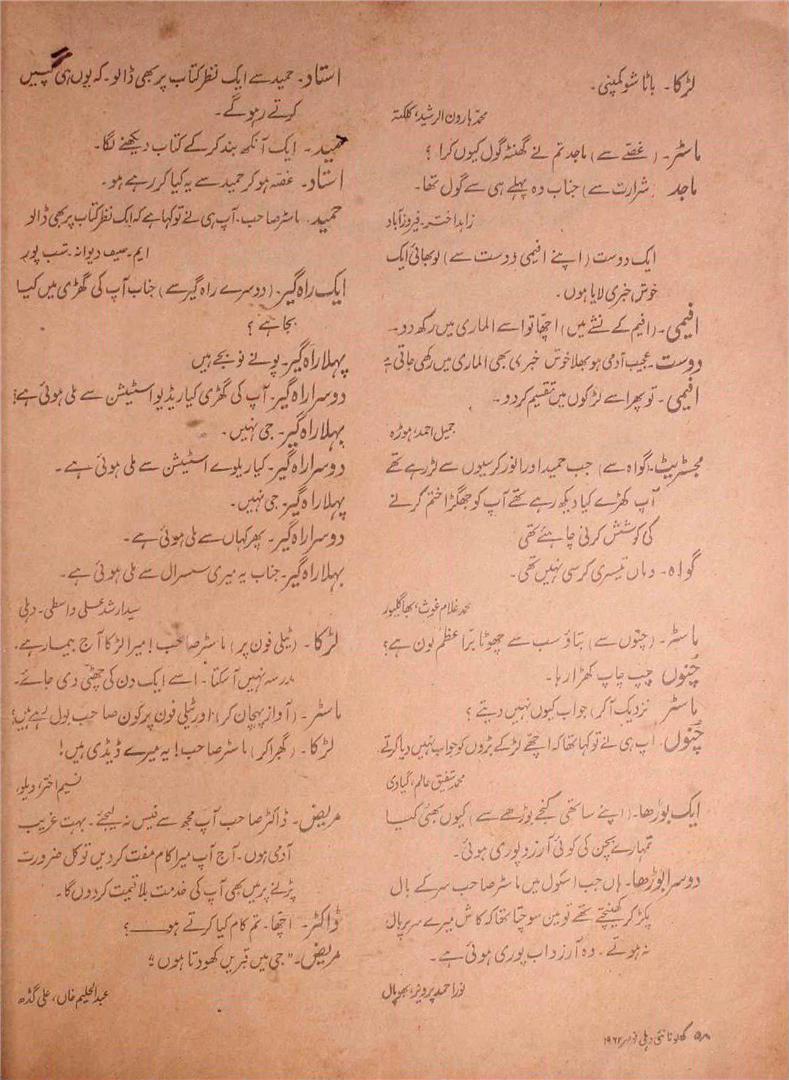 لڑکا۔ باٹا شو کمپنی۔
محمد ہارون الرشید، کلکتہ
ماسٹر۔ (غصّے سے) ماجد تم نے گھنٹہ گول کیوں کرا ؟
ماجد (شرارت سے) جناب وہ پہلے ہی سے گول تھا۔
زاہد اختر۔ فیروز آباد
ایک دوست (اپنے افیمی دوست سے) لو بھائی ایک
خوش خبری لایا ہوں۔
افیمی۔ (افیم کے نشے میں) اچھا تو اسے الماری میں رکھ دو۔
دوست۔ عجیب آدمی ہو بھلا خوش خبری بھی الماری میں رکھی جاتی ہے
افیمی۔ تو پھر اسے لڑکوں میں تقسیم کر دو۔
جمیل احمد، ہوڑہ
مجسٹریٹ۔ (گواہ سے) جب حمید اور انور کرسیوں سے لڑ رہے تھے
آپ کھڑے کیا دیکھ رہے تھے آپ کو جھگڑا ختم کرنے
کی کوشش کرنی چاہئے تھی
گواہ۔ وہاں تیسری کرسی نہیں تھی۔
محمد غلام غوث، بھاگلپور
ماسٹر۔ (چنّوں سے) بتاؤ سب سے چھوٹا برّاعظم کون ہے؟
چُنّوں چپ چاپ کھڑا رہا۔
ماسٹر نزدیک آکر) جواب کیوں نہیں دیتے ؟
چُنّوں۔ آپ ہی نے تو کہا تھا کہ اچھے لڑکے بڑوں کو جواب نہیں دیا کرتے
محمد شفیق عالم، گیاوی
ایک بوڑھا۔ (اپنے ساتھی گنجے بوڑھے سے) کیوں بھئی کیا
تمہارے بچپن کی کوئی آرزو پوری ہوئی۔
دوسرا بوڑھا۔ ہاں جب اسکول میں ماسٹر صاحب سر کے بال
پکڑ کر کھینچتے تھے تو میں سوچتا تھا کہ کاش میرے سر پر بال
نہ ہوتے۔ وہ آرزو اب پوری ہوئی ہے۔
نور احمد پرویز، بھوپال
استاد۔ حمید سے ایک نظر کتاب پر بھی ڈالو۔ کہ یوں ہی گپیں
کرتے رہو گے۔
حمید۔ ایک آنکھ بند کر کے کتاب دیکھنے لگا۔
استاد۔ غصّہ ہو کر حمید سے یہ کیا کر رہے ہو۔
حمید۔ ماسٹر صاحب۔ آپ ہی نے تو کہا ہے کہ ایک نظر کتاب پر بھی ڈالو
ایم۔ صیف دیوانہ۔
ایک راہ گیر۔ (دوسرے راہ گیر سے) جناب آپ کی گھڑی میں کیا
بجا ہے ؟
پہلا راہ گیر۔ پونے نو بجے ہیں
دوسرا راہ گیر۔ آپ کی گھڑی کیا ریڈیو اسٹیشن سے ملی ہوئی ہے؟
پہلا راہ گیر۔ جی نہیں۔
دوسرا راہ گیر۔ کیا ریلوے اسٹیشن سے ملی ہوئی ہے۔
پہلا راہ گیر۔ جی نہیں۔
دوسرا راہ گیر۔ پھر کہاں سے ملی ہوئی ہے۔
پہلا راہ گیر۔ جناب یہ میری سسرال سے ملی ہوئی ہے۔
سید ارشد علی واسطی۔ دہلی
لڑکا۔ (ٹیلی فون پر) ماسٹر صاحب! میرا لڑکا آج بیمار ہے،
مدرسہ نہیں آ سکتا۔ اسے ایک دن کی چھٹی دی جائے۔
ماسٹر۔ (آواز پہچان کر) اور ٹیلی فون پر کون صاحب بول رہے ہیں؟
لڑکا۔ (گھبرا کر) ماسٹر صاحب! یہ میرے ڈیڈی ہیں!
نسیم اختر،
مریض۔ ڈاکٹر صاحب آپ مجھ سے فیس نہ لیجئے۔ بہت غریب
آدمی ہوں۔ آج آپ میرا کام مفت کر دیں تو کل ضرورت
پڑنے پر میں بھی آپ کی خدمت بلا قیمت کر دوں گا۔
ڈاکٹر۔ اچھا۔ تم کام کیا کرتے ہو ——؟
مریض۔ "جی میں قبریں کھودتا ہوں"
عبد الحلیم خاں، علی گڈھ
۵۸ کھلونا نئی دہلی نومبر ۱۹۶۲